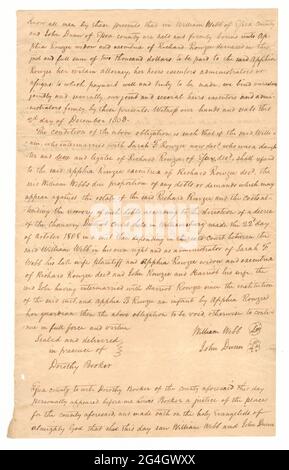 Know all men by these presents that we William Webb of Essex county
and John Duson of Essex county are held and firmly bound unto Ap-
phia Rowzee widow and executrix of Richard Rowzee deceased in the
just and full sum of two thousand dollars to be paid to the said Apphia
Rowzee her certain attorney her heirs executors administrators or
assigns to which payment well and truly to be made, we bind ourselves
jointly and severally our joint and several heirs executors and admi-
nistrators firmly by these presents. Witness our hands and seals this
day of December 1808.
The condition of the above obligation is such that if the said Will-
iam, who intermarried with Sarah F Rowzee now decd. who was a daugh-
ter and legatee of Richard Rowzee of decd., shall refund
to the said Apphia Rowzee executrix of Richard Rowzee decd. the
said William Webbs due proportion of any debts or demands which may
appear against the estate of the said Richard Rowzee and the costs at-
tending the recovery
of the chancery made the 22d
of October 1808 in a suit then depending in the said court between the
said William Webb in his own right and as administrator of Sarah F
Webb his late wife plaintiff and Apphia Rowzee widow and executrix
of Richard Rowzee decd. and John Rowzee and Harriot his wife the
said John having intermarried with Harriot Rowzee since the institution
of the said suit, and Apphia D Rowzee an infant by Apphia Rowzee
her guardian then the above obligation to be void otherwise to conti-
nue in full force and virtue
Sealed and delivered
in presence of
William Webb
John
Dorothy Booker
Essex county to wit: Dorothy Booker of the county aforesaid this day
personally appeared before me Lewis Booker a justice of the peace
for the county aforesaid and made oath on the holy Evangelists of
Almighty God that she this day saw William Webb and John
alamy
2C4GWXX